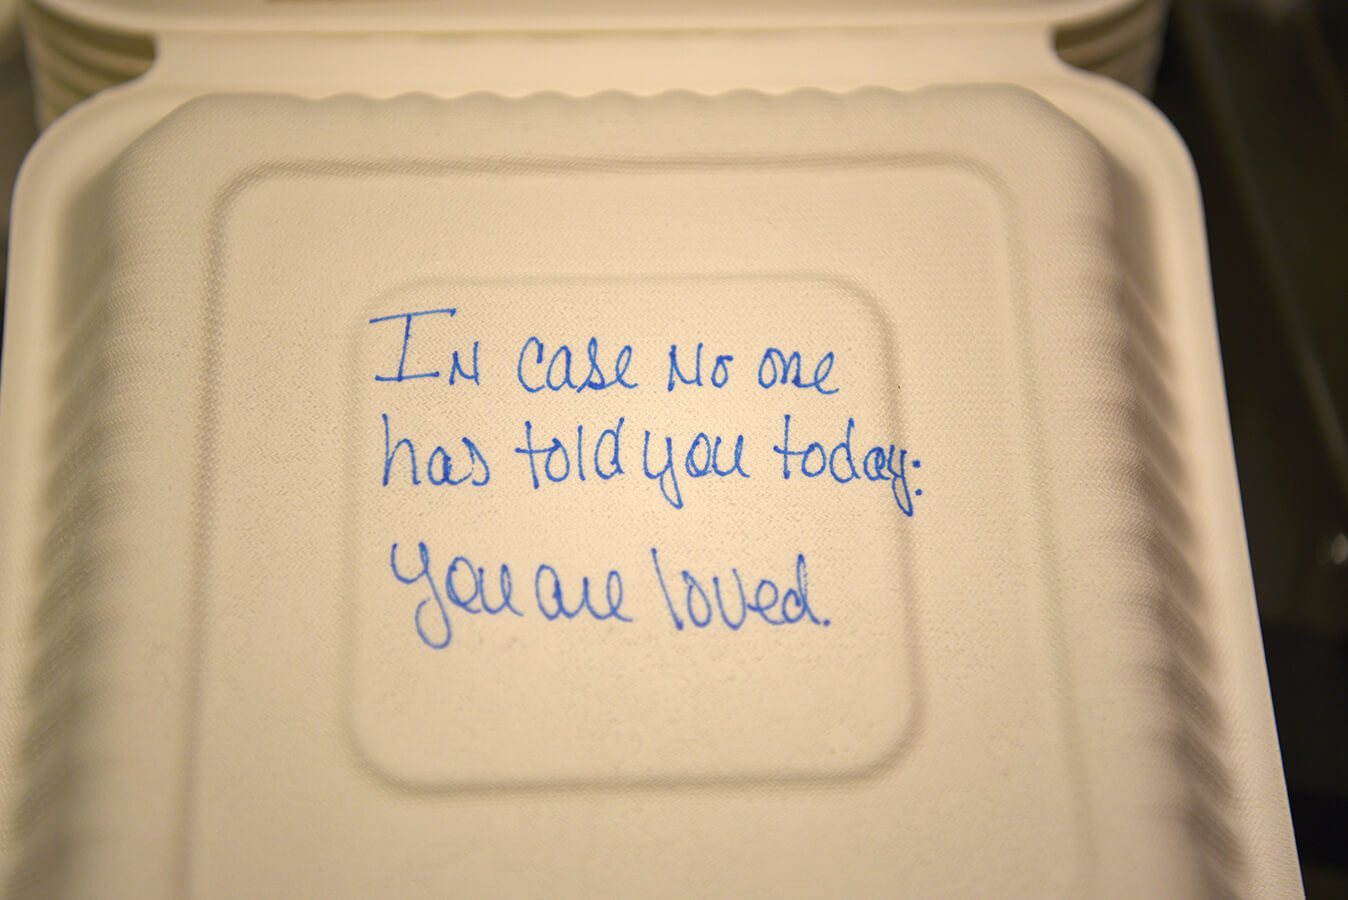 In case No one
has told you today:
you are loved.